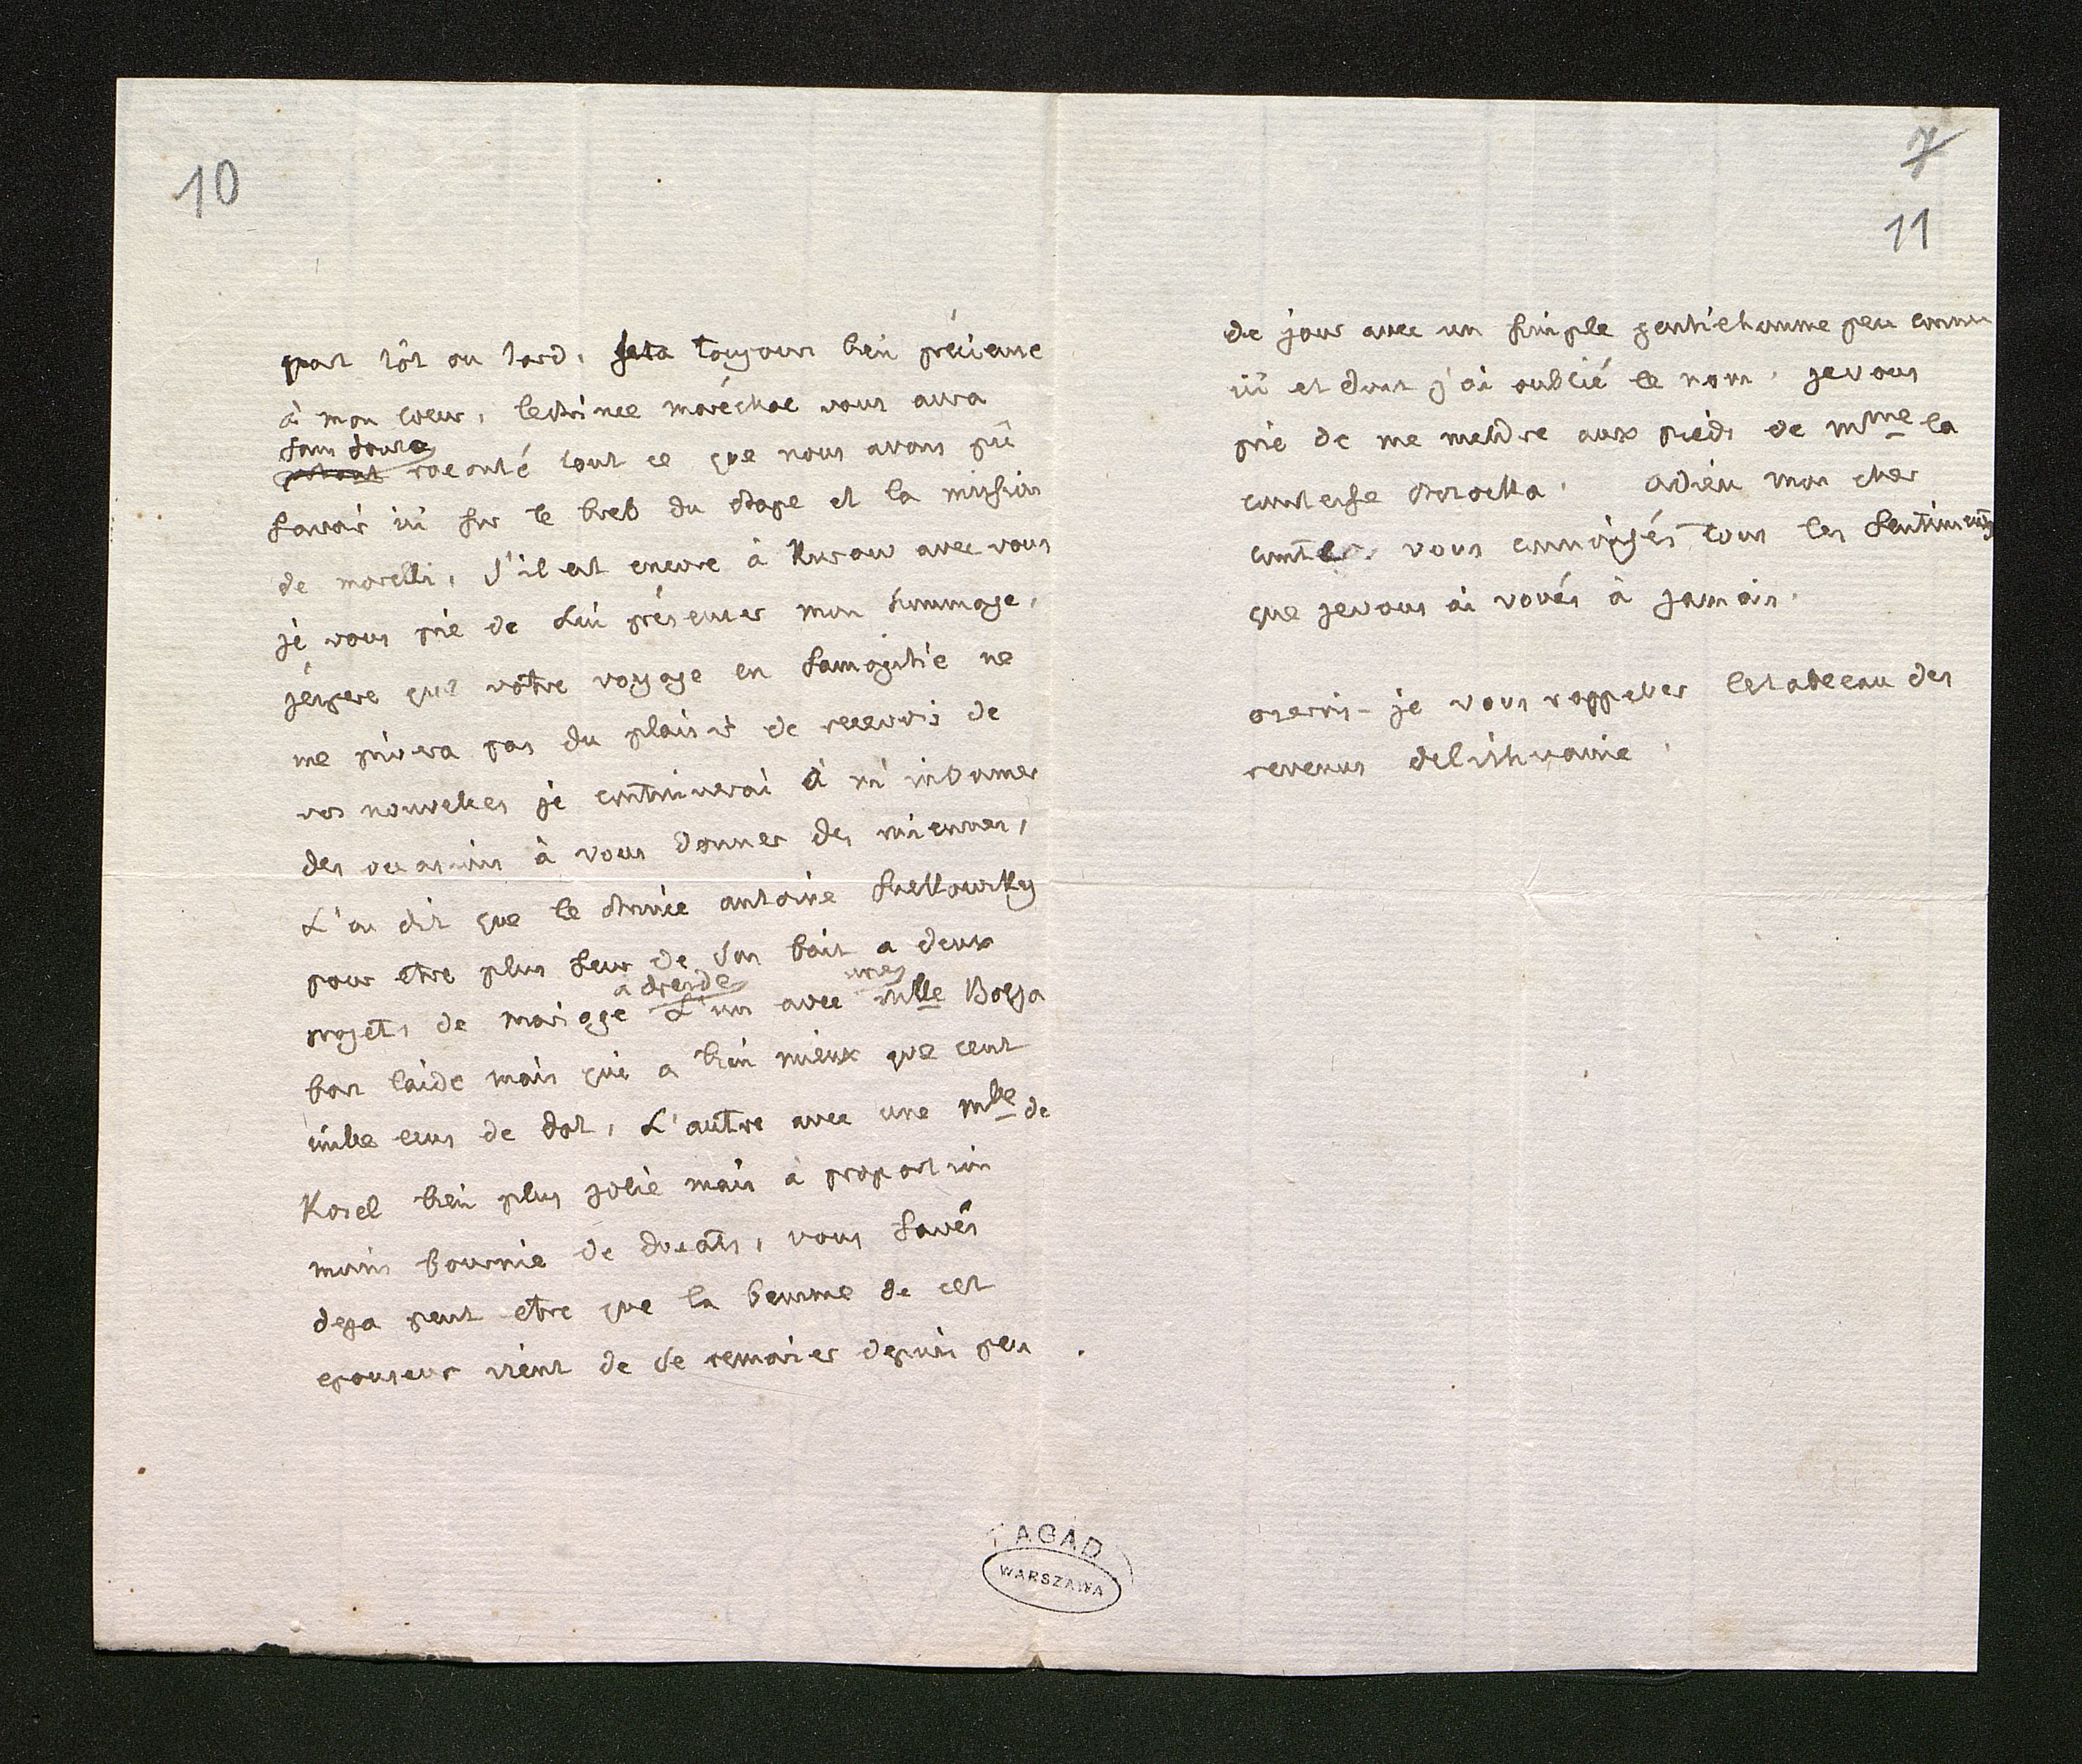 10
part tôt ou tard, sera toujours bien précieuse
à mon coeur, le Prince maréchal vous aura
sans doute
raconté tout ce que nous avons pû
savoir ici sur le bref du Pape et la mission
de morelli, s'il est encore à Kurow avec vous
je vous prie de Lui présenter mon hommage,
jéspere que votre voyage en Samogitie ne
me privera pas du plaisir de recevoir de
vos nouvelles je continuerai à m'informer
des occasions à vous donner des miennes,
L'on dit que le Prince antoine Sulkowsky
pour etre plus seur de son fait a deux
à dresde une
projets de mariage L'un avec Mlle Boza
fort laide mais qui a bien mieux que cent
mille ecus de dot, L'autre avec une Mlle de
Kosel bien plus jolie mais à proportion
moins fournie de ducats, vous savés
deja peut etre que la femme de cet
epouseur vient de se remarier depuis peu
7
11
de jour avec un simple gentilhomme peu connu
ici et dont j'ai oublié le nom. je vous
prie de me mettre aux pieds de Mme la
comtesse Potocka. Adieu mon cher
comte. vous connoissés tous les sentiments
que je vous ai voués à jamais.
oserois-je vous rappeller le tableau des
revenus de lithuanie.
AGAD
WARSZAWA